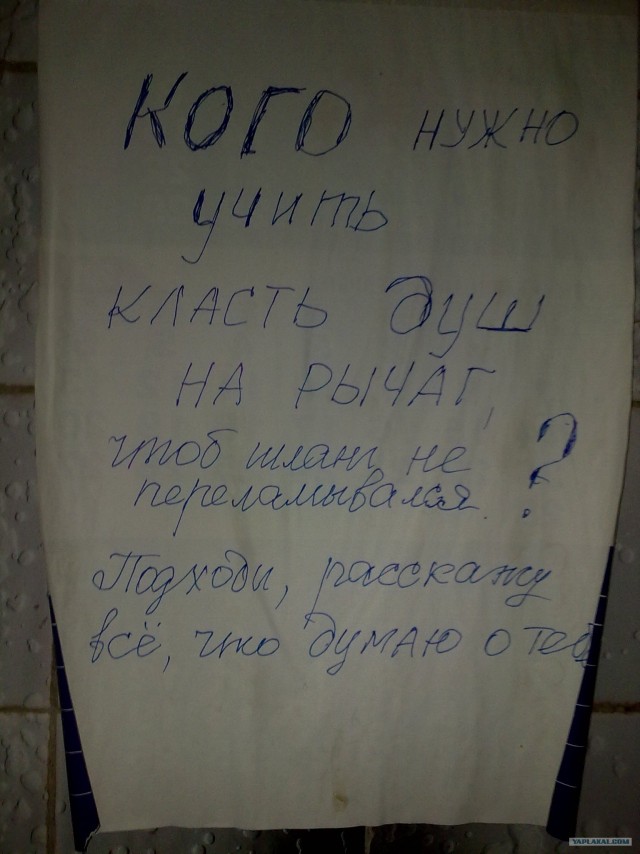 КОГО НУЖНО
УЧИТЬ
КЛАСТЬ ДУШ
НА РЫЧАГ,
чтоб шланг не
переламывался ?
Подходи, расскажу
всё, что думаю о тебе
YAPLAKAL.COM